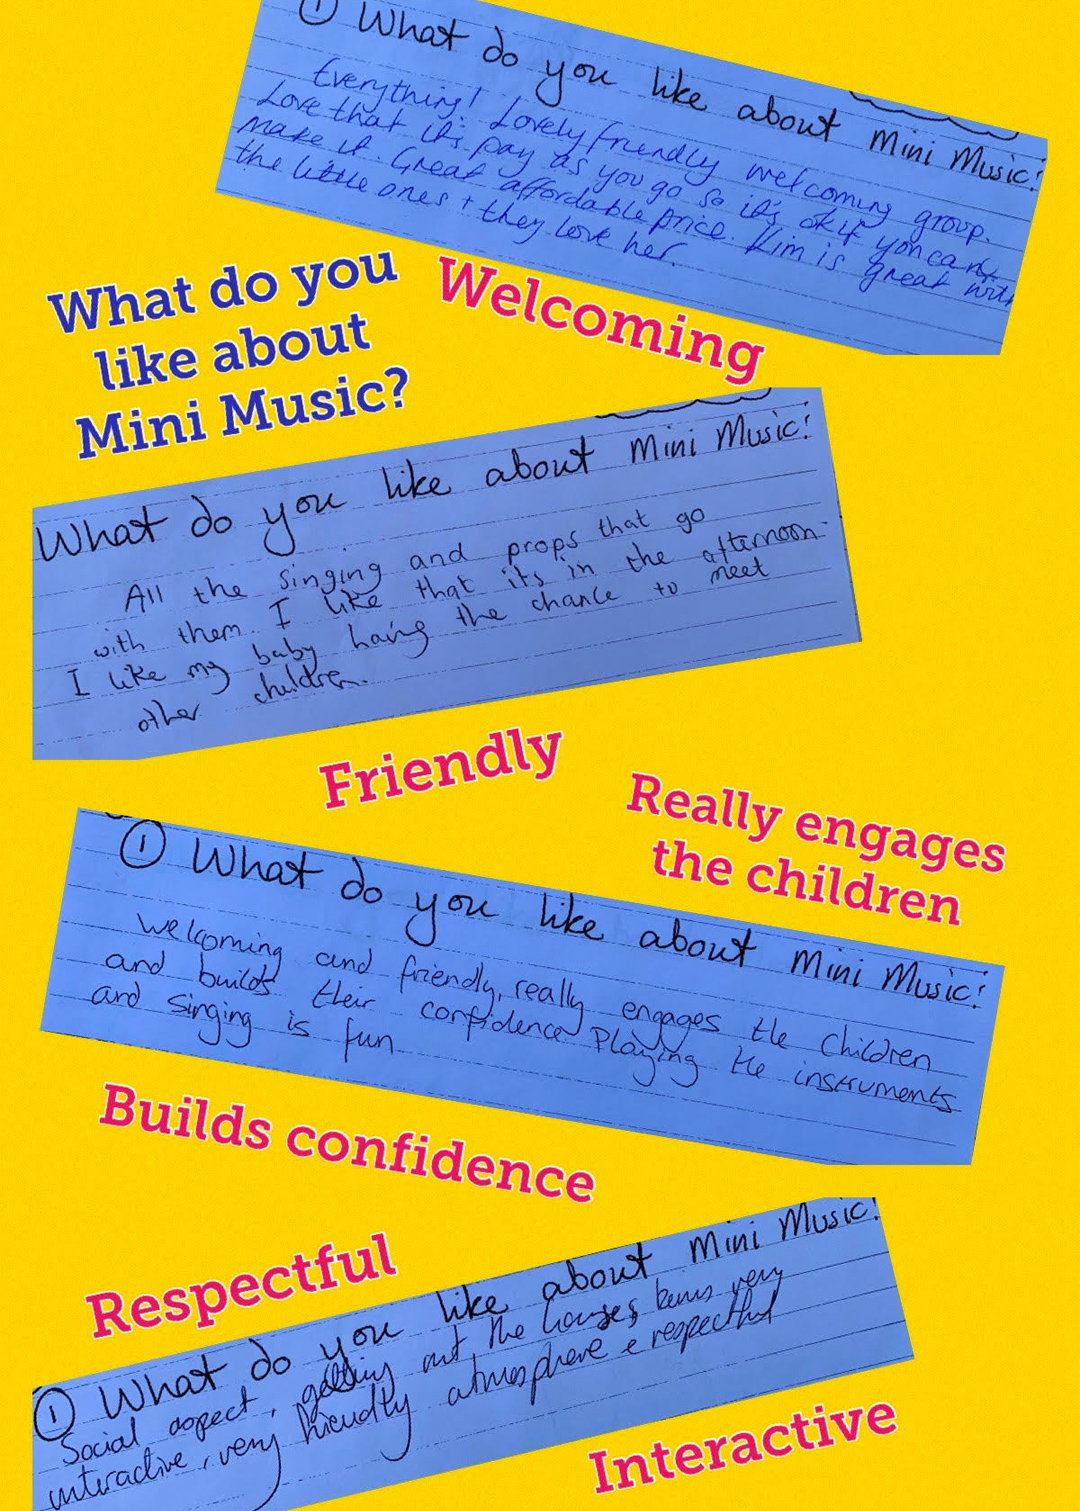 ① What do you like about Mini Music?
Everything! Lovely friendly welcoming group.
Love that it's pay as you go so it's ok if you can't
make it. Great affordable price. Kim is great with
the little ones + they love her.
What do you
like about
Mini Music?
Welcoming
What do you like about Mini Music?
All the singing and props that go
with them. I like that its in the afternoon
I like my baby having the chance to meet
other children.
Friendly
Really engages
the children
① What do you like about Mini Music?
Welcoming and friendly, really engages the children
and builds their confidence. Playing the instruments
and singing is fun
Builds confidence
Respectful
① What do you like about Mini Music?
Social aspect, getting out, the being very
interactive, very friendly atmosphere & respectful
Interactive